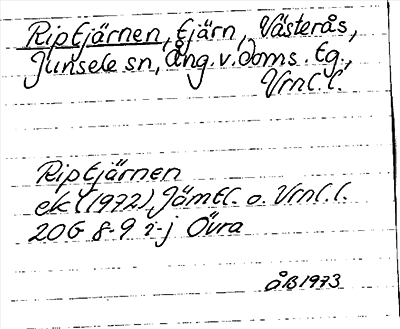 Riptjärnen, tjärn, Västerås,
Junsele sn, Ång. v. doms. tg.,
Vrnl. l.
Riptjärnen
ek (1972) Jämtl. o. Vrnl. l.
20G 8-9 i-j Övra
ÅB 1973